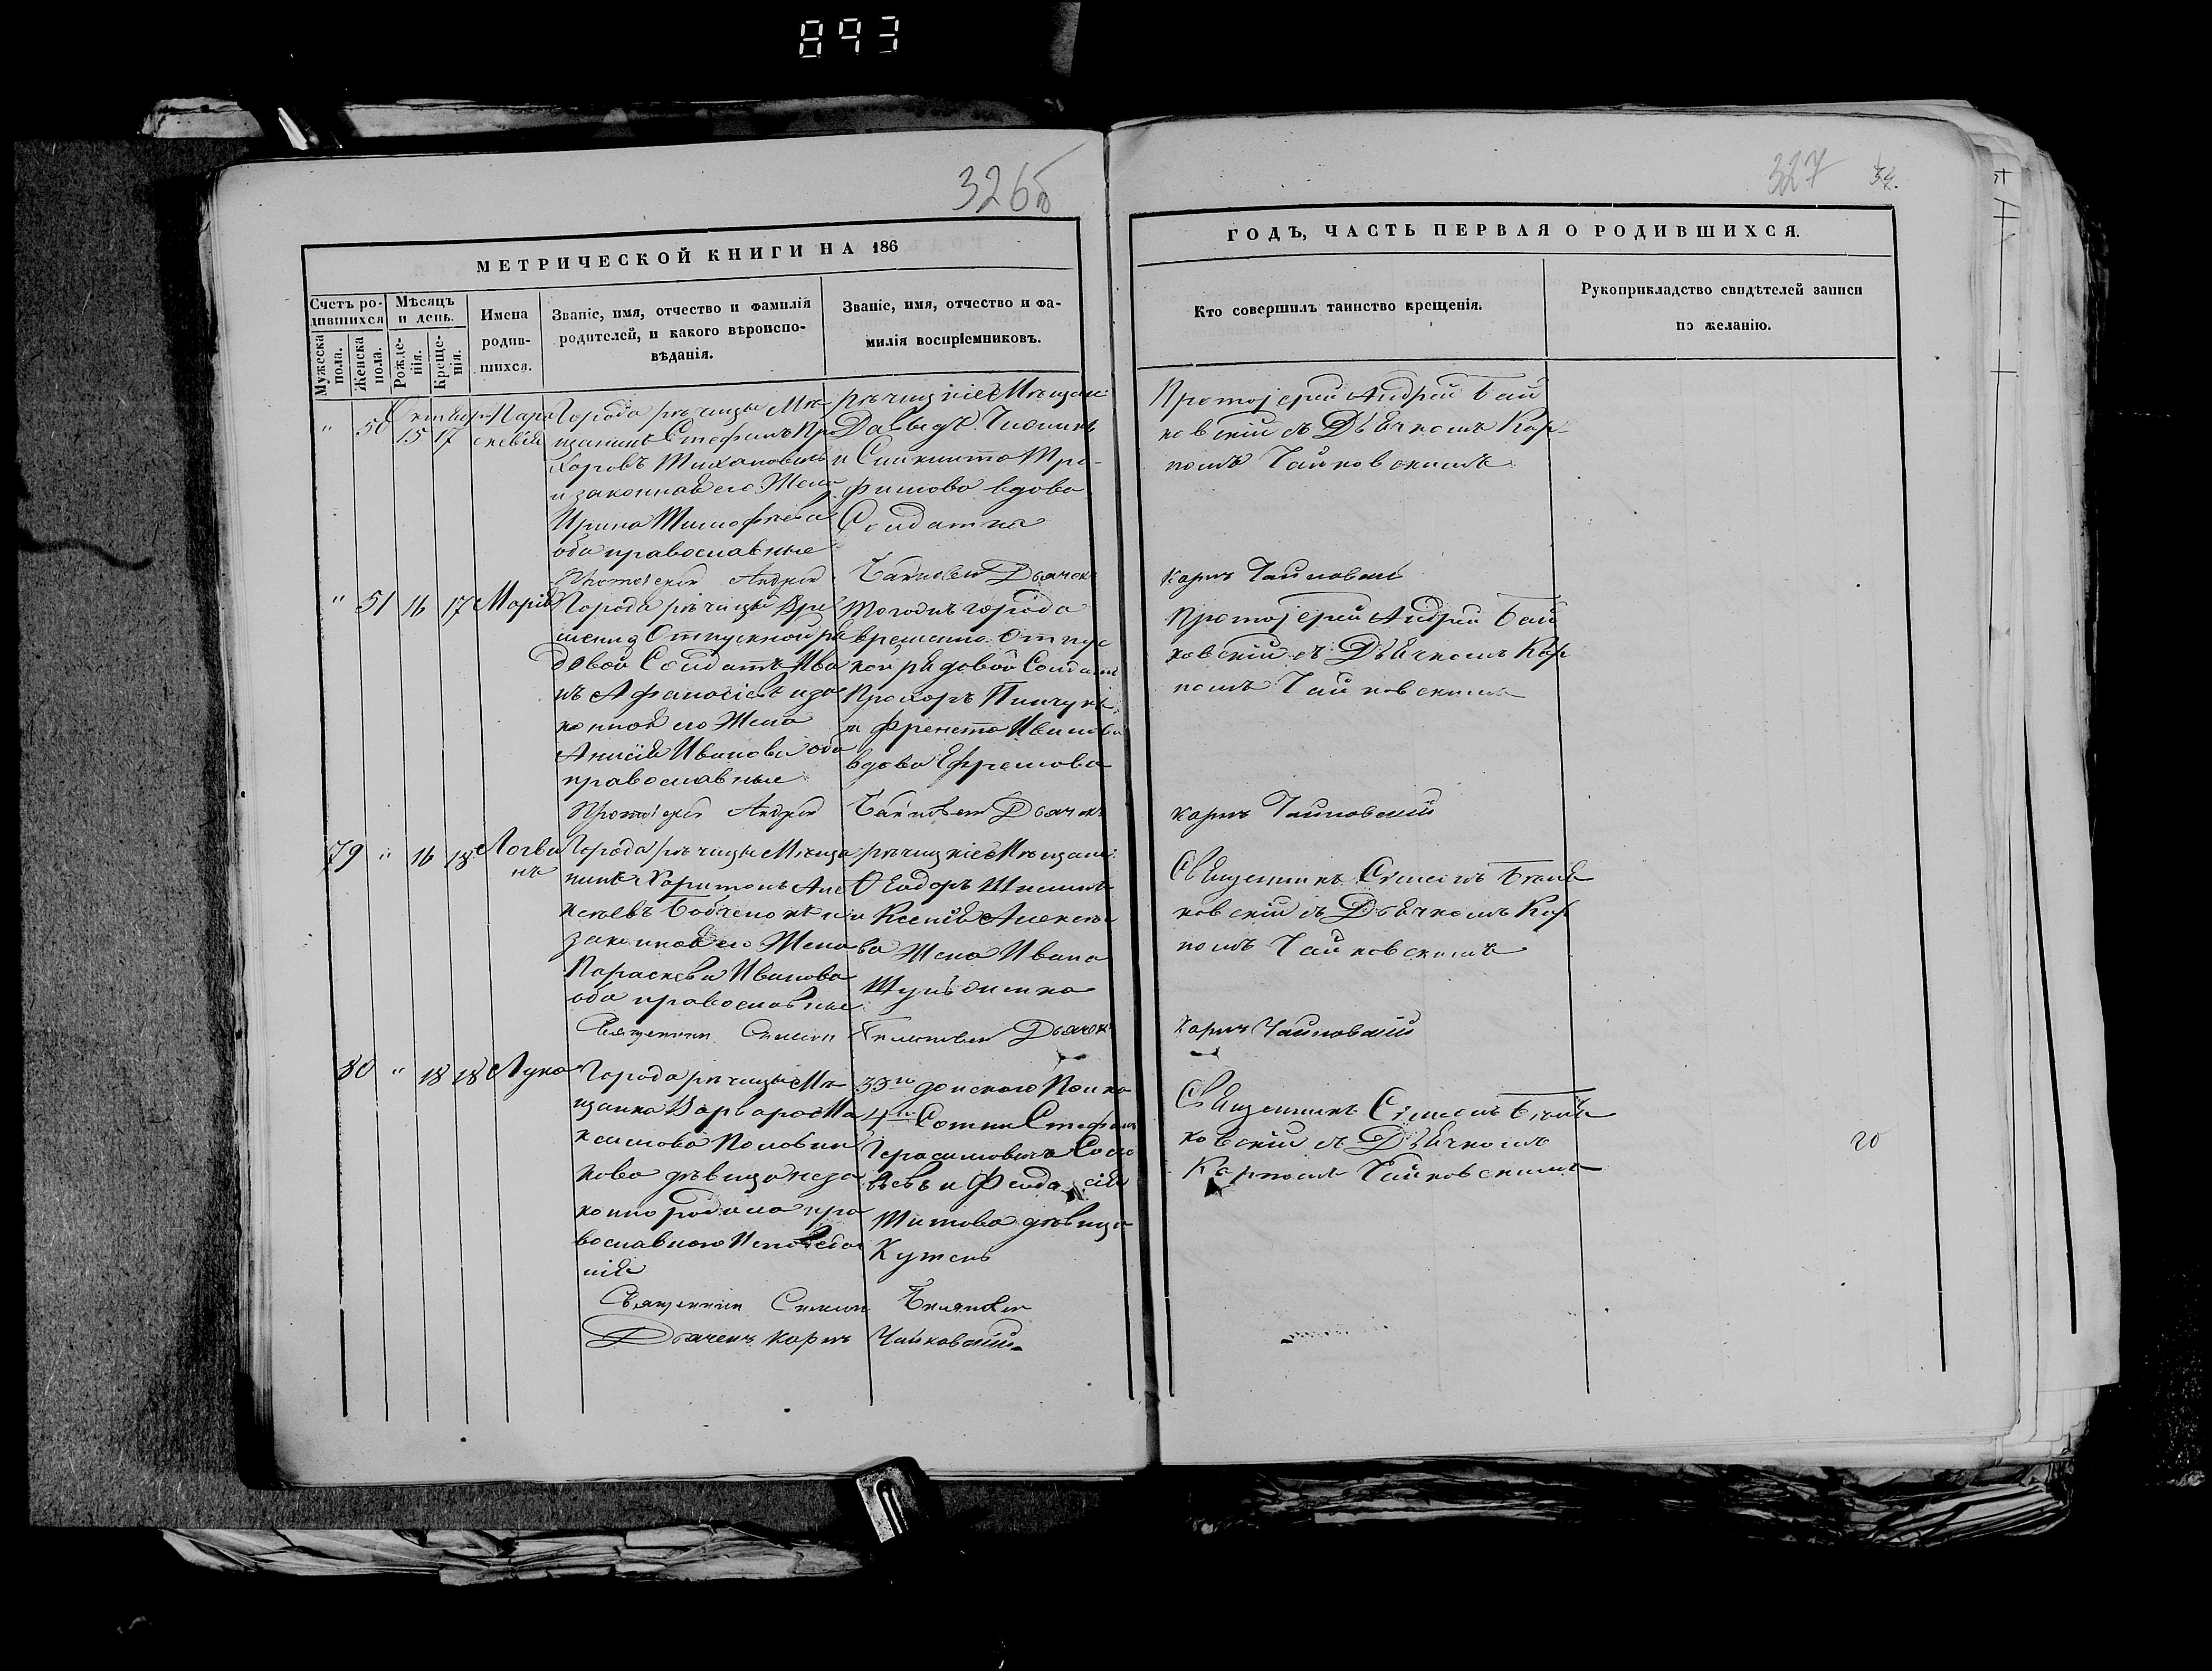 893
326б
МЕТРИЧЕСКОЙ КНИГИ НА 186
Счетъ ро-
дившихся
Мужеска
пола.
Женска
пола.
Мѣсяцъ
и день.
Рожде-
нія.
Креще-
нія.
Имена
родив-
шихся.
Званіе, имя, отчество и фамилія
родителей, и какого вѣроиспо-
вѣданія.
Званіе, имя, отчество и фа-
милія воспріемниковъ.
" 50 15 17
Пара
скевія
Города рѣчицы Мѣ-
щанинъ Стефанъ Про
хоровъ
и законная его Жена
Ирина Тимофѣева
оба православные
рѣчицкіе Мѣщане
Давыдъ
Тро-
фимова вдова
Солдатка
Протоіерей Андрей
Дьячекъ
" 51 16 17 Марія
Города рѣчицы Вре
менно Отпускной ря
довой Солдатъ Ива
нъ Афанасіевъ и за
конная его Жена
Анисія Иванова оба
православные
того же города
временно Отпус
кной рядовой Солдатъ
Прохоръ Пинчукъ
и Иванова
вдова Ефремова
Протоіерей Андрей
Дьячекъ
79 " 16 18 Логви
нъ
Города рѣчицы Мѣща
нинъ Харитонъ Але
ксѣевъ и
законная его Жена
Параскева Иванова
оба православные
рѣчицкіе Мѣщане
Ѳеодоръ
и Ксенія Алексѣе
ва Жена Ивана
Священник Симеон Дьячок
80 " 18 18 Лука
Города рѣчицы Мѣ
щанка Варвара Ма
ксимова Половин
кова дѣвица неза
конно родила пра
вославного Исповеда
нія
33го донского Полка
4й Сотни Стефанъ
Герасимовичъ Соло
вьевъ и Феодосія
Титова дѣвица
Кужель
Священник Симеон
Дьячекъ Карпъ Чайковскій
327
34.
ГОДЪ, ЧАСТЬ ПЕРВАЯ О РОДИВШИХСЯ.
Кто совершилъ таинство крещенія.
Рукоприкладство свидѣтелей записи
по желанію.
Протоіерей Андрей Бай
ковскій съ Дьячкомъ Кар-
помъ Чайковскимъ
Карпъ Чайковскій
Протоіерей Андрей Бай
ковскій съ Дьячкомъ Кар
помъ Чайковскимъ
Карпъ Чайковскій
Священникъ Симеонъ
ковскій съ Дьячкомъ Кар
помъ Чайковскимъ
Карпъ Чайковскій
Священникъ Симеонъ
ковскій съ Дьячкомъ
Карпомъ Чайковскимъ
20